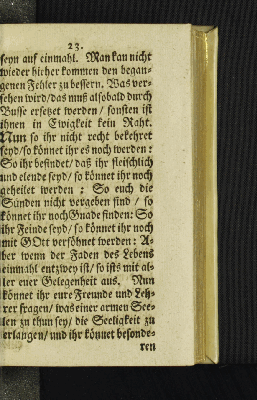 23.
seyn auf einmahl. Man kan nicht
wieder hieher kommen den began-
genen Fehler zu bessern. Was ver-
sehen wird/das muß alsobald durch
Busse ersetzet werden / sonsten ist
ihnen in Ewigkeit kein Raht.
Nun so ihr nicht recht bekehret
seyd/so könnet ihr es noch werden:
So ihr befindet/daß ihr fleischlich
und elende seyd/ so könnet ihr noch
geheilet werden : So euch die
Sünden nicht vergeben sind / so
könnet ihr noch Gnade finden: So
ihr Feinde seyd/ so könnet ihr noch
mit GOtt versöhnet werden: A-
ber wenn der Faden des Lebens
einmahl entzwey ist/ so ists mit al-
ler eurer Gelegenheit aus. Nun
könnet ihr eure Freunde und Leh-
rer fragen/ was einer armen See-
len zu thun sey/ die Seeligkeit zu
erlangen/ und ihr könnet besonde-
ren